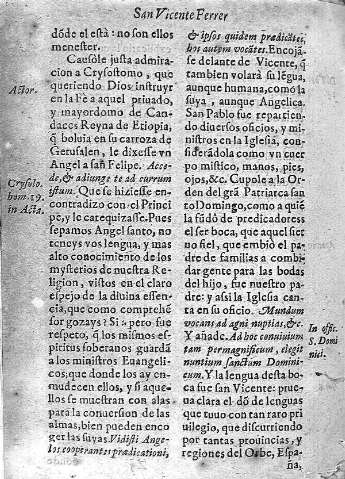 San Vicente Ferrer
dóde el està: no son ellos
menester.
Causòle justa admira-
cion a Crysostomo, que
queriendo Dios instruyr
en la Fè a aquel priuado,
y mayordomo de Can-
daces Reyna de Etiopia,
q̃ boluia en su carroza de
Gerusalen, le dixesse vn
Angel a san Felipe. Acce-
de, & adiunge te ad currum
istum. Que se hiziesse en-
contradizo con el Princi-
pe, y le catequizasse. Pues
sepamos Angel santo, no
teneys vos lengua, y mas
alto conocimiento de los
mysterios de nuestra Re-
ligion, vistos en el claro
espejo de la diuina essen-
cia, que como comprehẽ
sor gozays? Si: pero fue
respeto, q̃ los mismos es-
piritus soberanos guardã
a los ministros Euangeli-
cos; que donde los ay en-
mudecen ellos, y si aque-
llos se muestran con alas
para la conuersion de las
almas, bien pueden enco-
ger las suyas. Vidisti Ange-
los cooperantes prædicationi,
Actor.
Crysosto.
hom. 19.
in Acta.
& ipsos quidem prædicãtes,
hos autem vocãtes. Encojã-
se delante de Vicente, q̃
tambien volarà su lẽgua,
aunque humana, como la
suya, aunque Angelica.
San Pablo fue repartien-
do diuersos oficios, y mi-
nistros en la Iglesia, con-
siderãdola como vn cuer
po mistico, manos, pies,
ojos, &c. Cupole a la Or-
den del grã Patriarca san-
to Domingo, como a quiẽ
la fũdò de predicadores
el ser boca, que aquel sier
uo fiel, que embiò el pa-
dre de familias a combi-
dar gente para las bodas
del hijo, fue nuestro pa-
dre: y assi la Iglesia can-
ta en su oficio. Mundum
vocans ad agni nuptias, &c.
Y añade. Ad hoc conuiuium
tam permagnificum, elegit
nuntium sanctum Domini-
cum. Y la lengua desta bo-
ca fue san Vicente: prue-
ua clara el dõ de lenguas
que tuuo con tan raro pri
uilegio, que discurriendo
por tantas prouincias, y
regiones del Orbe, Espa-
ña,
In offic.
S. Domi
nici.